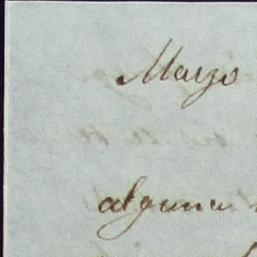 Marzo
alguna